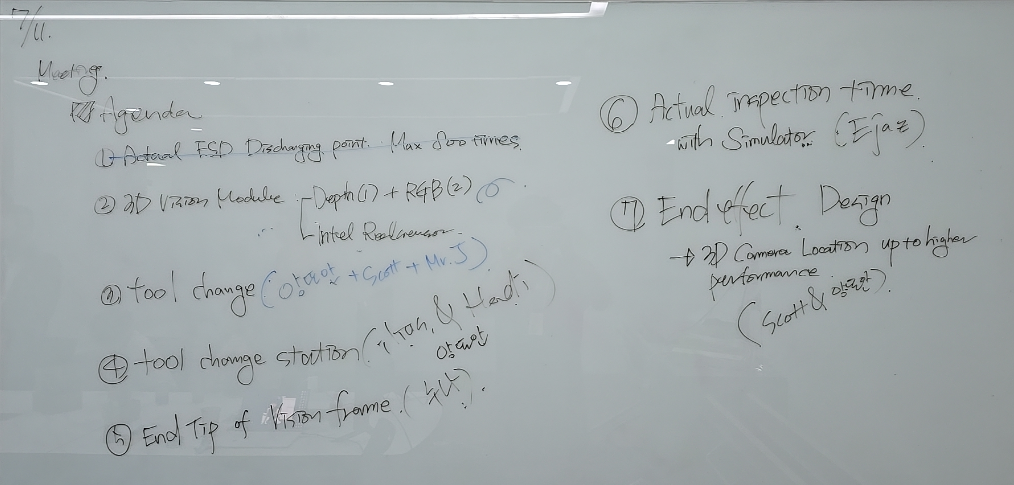 7/11.
Meeting.
Agenda
① Actual ESD Discharging point. Max 800 times.
② 3D Vision Module - Depth(1) + RGB(2)
- intel Realsensor.
③ tool change ( + Scott + Mr. J)
④ tool change station ( & Hadi)
⑤ End Tip of Vision frame. ( ).
⑥ Actual inspection time.
with Simulator. (Ejaz)
⑦ End effect. Design
→ 3D Camera Location up to higher
performance
(Scott & ).